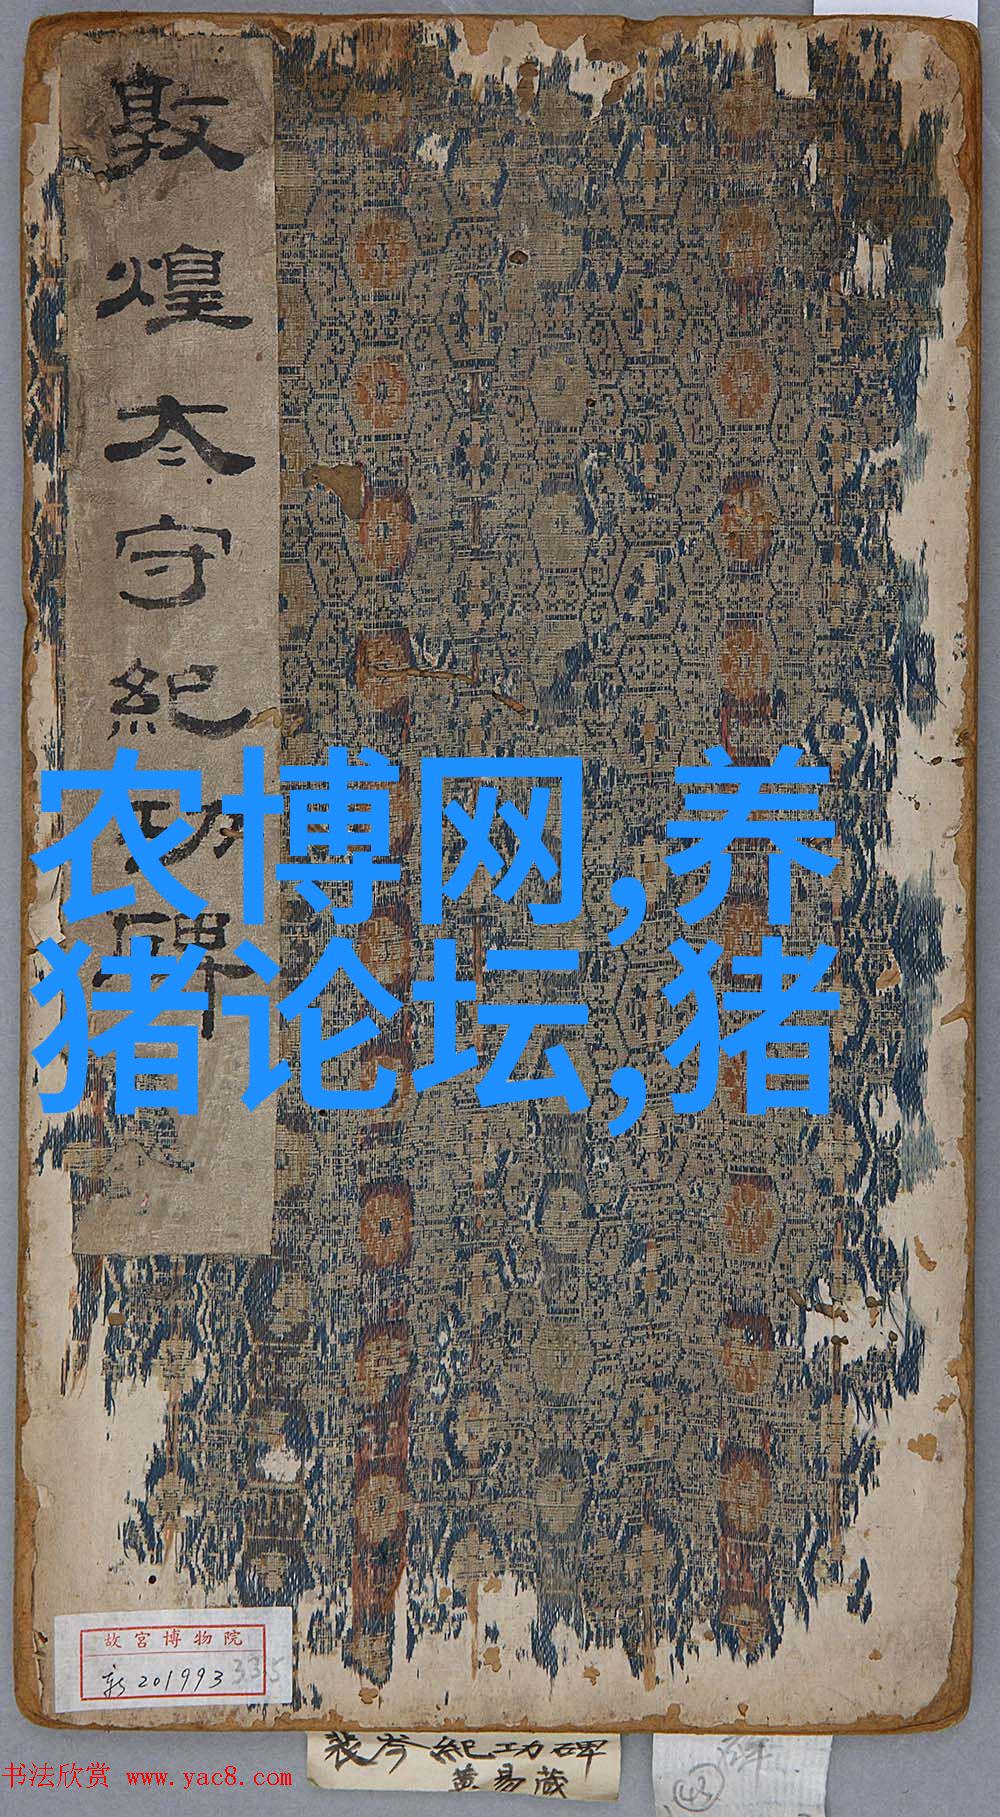 敦煌太守紀功碑
农博网,养
猪论坛,猪
故宫博物院
新201993
335
裴岑紀功碑
黄易藏
43
书法欣赏 www.yac8.com